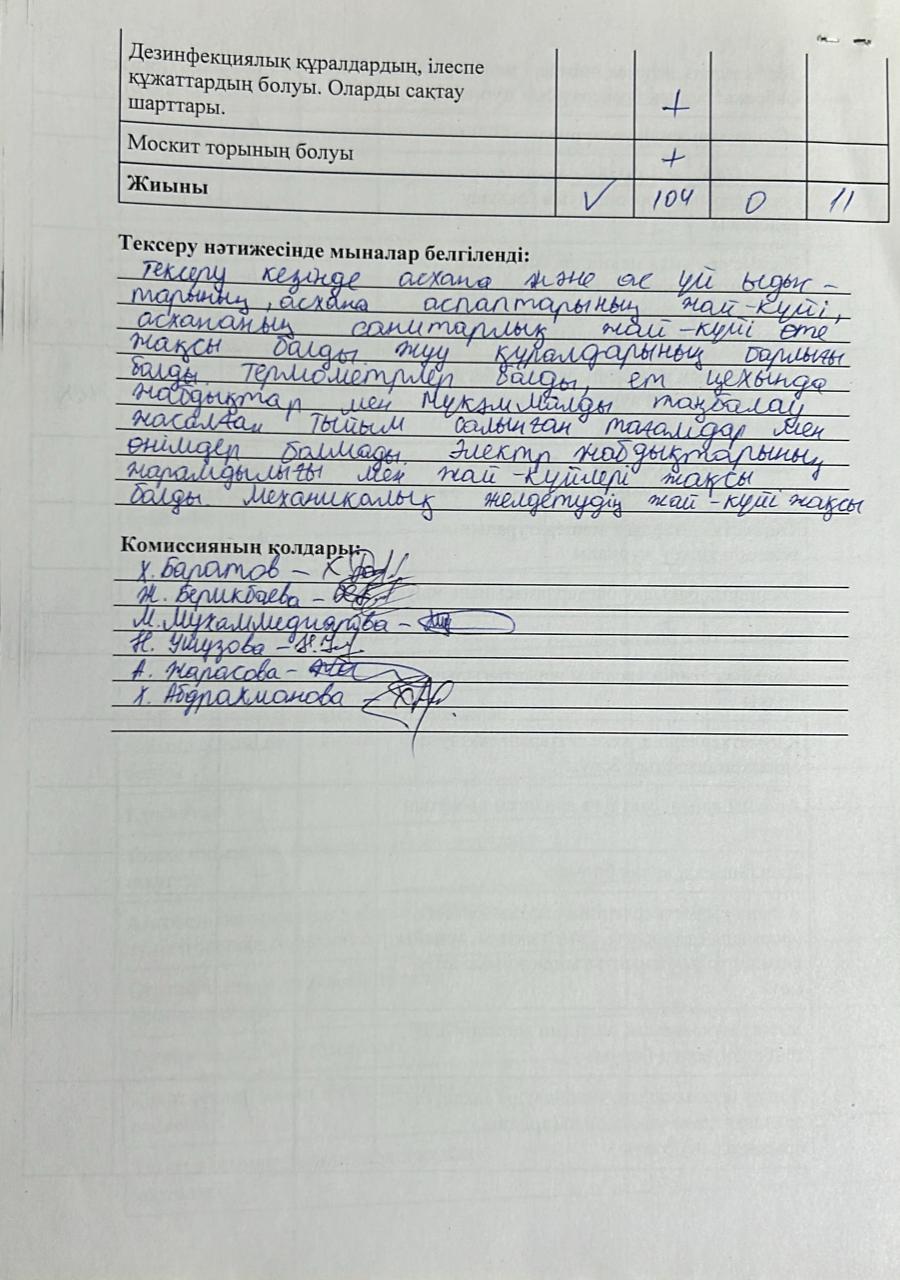 Дезинфекциялық құралдардың, ілеспе
құжаттардың болуы. Оларды сақтау
шарттары. +
Москит торының болуы +
Жиыны ✓ 104 0 11
Тексеру нәтижесінде мыналар белгіленді:
Тексеру кезінде асхана және ас үй ыдыс -
тарының, асхана аспаптарының жай-күйі,
асхананың санитарлық жай-күйі өте
жақсы балды. жуу құралдарының барлығы
балды. Термометрлер балды, ет цехында
жабдықтар мен мүкәммалды таңбалау
жасалған тыйым салынған тағамдар мен
өнімдер балмады. Электр жабдықтарының
жарамдылығы мен жай-күйлері жақсы
балды. механикалық желдетудің жай-күйі жақсы
Комиссияның қолдары:
Х. Баратов –
Ж. Берикбаева –
М. Мухаммедиярова –
Н. Ушузова –
А. Жарасова –
Х. Абдрахманова